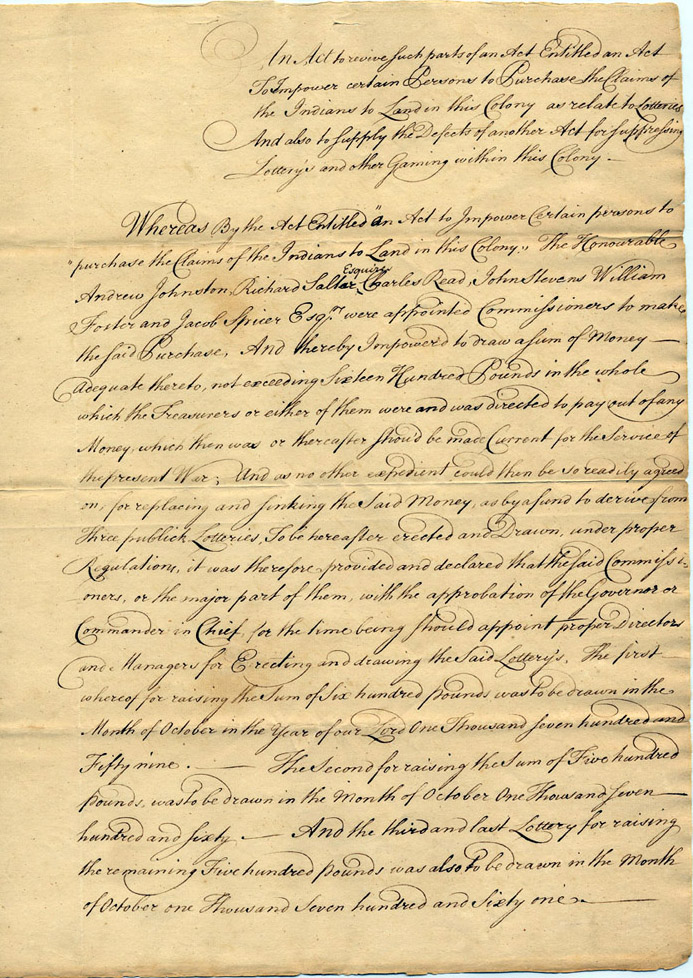 An Act to revive such parts of an Act Entitled an Act
To Impower certain Persons to Purchase the Claims of
the Indians to Land in this Colony as relate to Lotteries
And also to supply the Defects of another Act for suppressing
Lottery's and other Gaming within this Colony —
Whereas By the Act Entitled "an Act to Impower Certain persons to
"purchase the Claims of the Indians to Land in this Colony," The Honourable
Esquires
Andrew Johnston, Richard Saltar, Charles Read, John Stevens William
Foster and Jacob Spicer Esqrs. were appointed Commissioners to make
the said Purchase, And thereby Impowered to draw a sum of Money —
Adequate thereto, not exceeding Sixteen Hundred Pounds in the whole
which the Treasurers or either of them were and was directed to pay out of any
Money, which then was or thereafter should be made Current for the Service of
the present War; And as no other expedient could then be so readily agreed
on, for replacing and sinking the Said Money, as by a fund to derive from
Three publick Lotteries, To be hereafter erected and Drawn, under proper
Regulations, it was therefore provided and declared that the said Commissi-
oners, or the major part of them, with the approbation of the Governor or
Commander in Chief, for the time being should appoint proper Directors
and Managers for Erecting and drawing the Said Lottery's, The first
whereof for raising the Sum of Six hundred pounds was to be drawn in the
Month of October in the Year of our Lord One Thousand seven hundred and
Fifty nine. — The Second for raising the Sum of Five hundred
pounds, was to be drawn in the Month of October One Thousand seven
hundred and sixty — And the third and last Lottery for raising
the remaining Five hundred pounds was also to be drawn in the Month
of October one Thousand Seven hundred and Sixty one. —